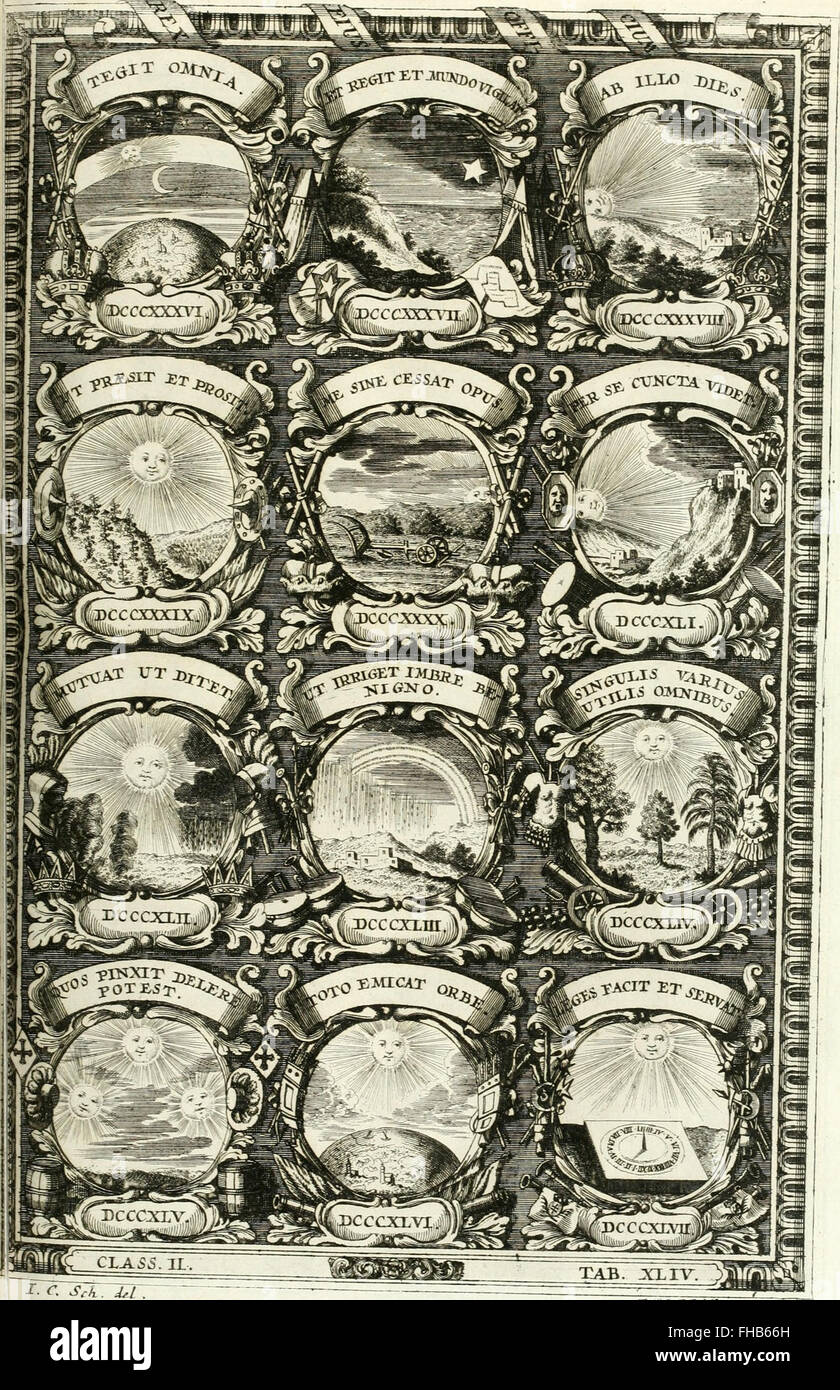 REX PIUS OFFICIUM
TEGIT OMNIA.
ET REGIT ET MUNDO VIGILAT
AB ILLO DIES.
DCCCXXXVI.
DCCCXXXVII
DCCCXXXVIII
UT PRÆSIT ET PROSIT.
ME SINE CESSAT OPUS.
PER SE CUNCTA VIDET.
DCCCXXXIX.
DCCCXXXX.
DCCCXLI.
MUTUAT UT DITET.
UT IRRIGET IMBRE BE-
NIGNO.
SINGULIS VARIUS
UTILIS OMNIBUS
DCCCXLII.
DCCCXLIII.
DCCCXLIV.
QUOS PINXIT DELERE
POTEST.
TOTO EMICAT ORBE.
LEGES FACIT ET SERVAT
DCCCXLV.
DCCCXLVI.
DCCCXLVII
CLASS. II.
TAB. XLIV.
I. C. Sch. del.
alamy
alamy stock photo
FHB66H
www.alamy.com